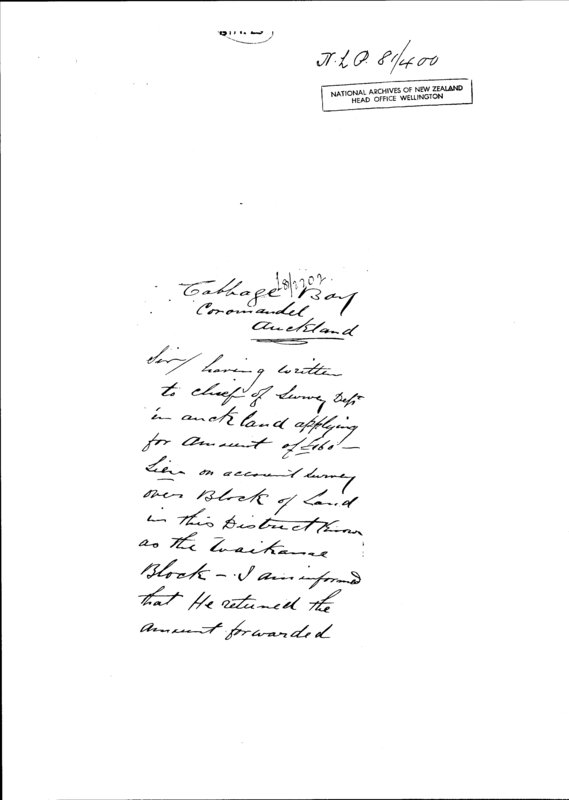 N.L.P. 81/400
NATIONAL ARCHIVES OF NEW ZEALAND
HEAD OFFICE WELLINGTON
Cabbage Bay
Coromandel
Auckland
Sir/ having written
to chief of Survey Dept
in auckland applying
for amount of £160 —
Lien on account survey
over Block of Land
in this District Known
as the Waikanae
Block – I am informed
that He returned the
amount forwarded